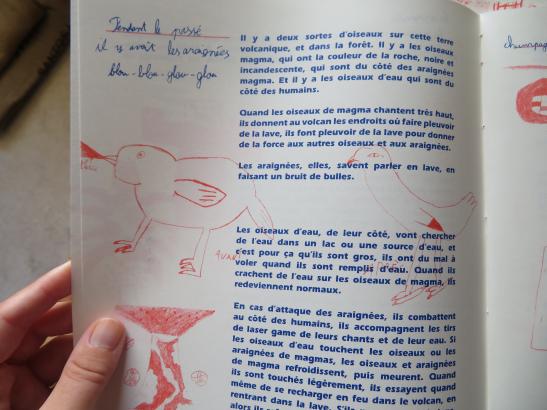 Pendant le passé
il y avait les araignées
blou - blou - glou - glou
Il y a deux sortes d'oiseaux sur cette terre
volcanique, et dans la forêt. Il y a les oiseaux
magma, qui ont la couleur de la roche, noire et
incandescente, qui sont du côté des araignées
magma. Et il y a les oiseaux d'eau qui sont du
côté des humains.
Quand les oiseaux de magma chantent très haut,
ils donnent au volcan les endroits où faire pleuvoir
de la lave, ils font pleuvoir de la lave pour donner
de la force aux autres oiseaux et aux araignées.
Les araignées, elles, savent parler en lave, en
faisant un bruit de bulles.
Les oiseaux d'eau, de leur côté, vont chercher
de l'eau dans un lac ou une source d'eau, et
c'est pour ça qu'ils sont gros, ils ont du mal à
voler quand ils sont remplis d'eau. Quand ils
crachent de l'eau sur les oiseaux de magma, ils
redeviennent normaux.
AVANT
En cas d'attaque des araignées, ils combattent
au côté des humains, ils accompagnent les tirs
de laser game de leurs chants et de leur eau. Si
les oiseaux d'eau touchent les oiseaux ou les
araignées de magmas, les oiseaux et araignées
de magma refroidissent, puis meurent. Quand
ils sont touchés légèrement, ils essayent quand
même de se recharger en feu dans le volcan, en
rentrant dans la lave. S'ils
alors ils